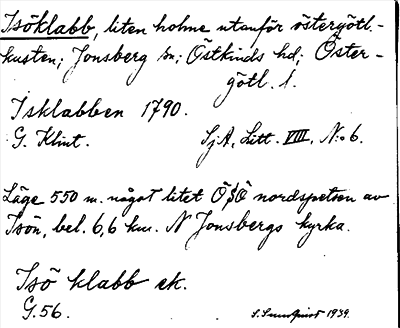 Isöklabb, liten holme utanför östergötl.-
kusten; Jonsberg sn; Östkinds hd; Öster-
götl. l.
Isklabben 1790.
G. Klint. SjA, Litt. VIII, N:o 6.
Läge 550 m. något litet ÖSÖ nordspetsen av
Isön, bel. 6,6 km. N Jonsbergs kyrka.
Isö klabb ek.
G.56. S. Sundqvist 1939.